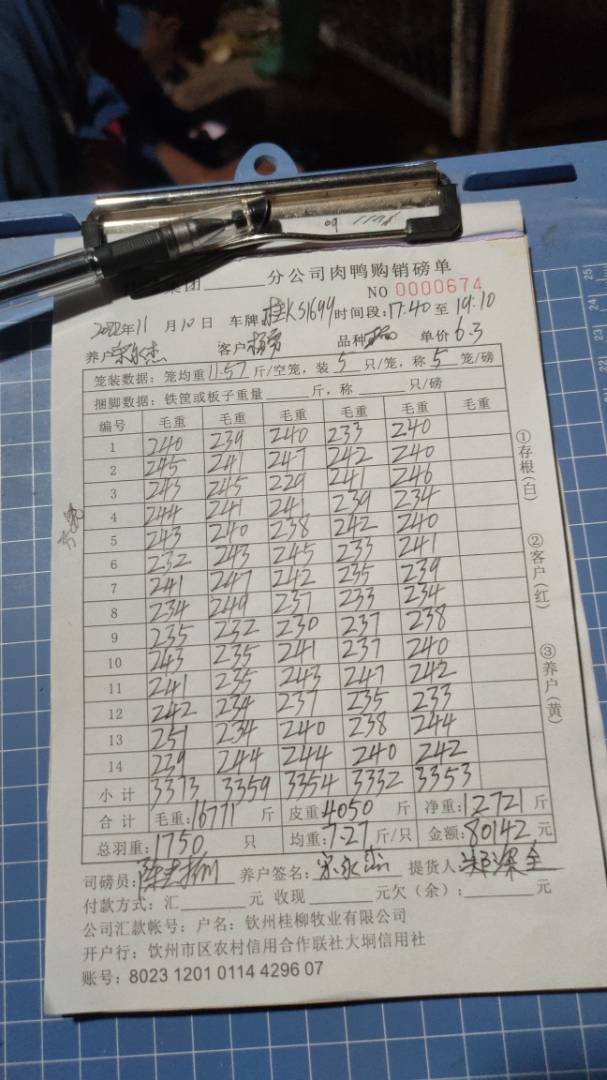 集团______分公司肉鸭购销磅单
NO 0000674
2022年11月10日 车牌 桂K51699 时间段:17:40至19:10
养户 宋永杰 客户 杨秀 品种 单价 6.3
笼装数据: 笼均重 11.57 斤/空笼, 装 5 只/笼, 称 5 笼/磅
捆脚数据: 铁筐或板子重量______斤, 称______只/磅
编号 毛重 毛重 毛重 毛重 毛重 毛重
1 240 239 240 233 240
2 245 241 247 242 240
3 243 245 229 241 246
4 244 241 241 239 234
5 243 240 238 242 240
6 232 243 245 233 241
7 241 247 242 235 239
8 234 249 237 233 234
9 235 232 230 237 238
10 243 235 241 237 240
11 241 235 243 247 242
12 242 234 237 235 233
13 251 234 240 238 244
14 239 244 244 240 242
小计 3373 3359 3354 3332 3353
合计 毛重:16771 斤 皮重 4050 斤 净重:12721 斤
总羽重:1750 只 均重:7.27 斤/只 金额:80142 元
司磅员: 养户签名: 宋永杰 提货人
付款方式: 汇______元 收现______元欠(余):______元
公司汇款帐号: 户名: 钦州桂柳牧业有限公司
开户行: 钦州市区农村信用合作联社大垌信用社
账号: 8023 1201 0114 4296 07
①存根(白)
②客户(红)
③养户(黄)